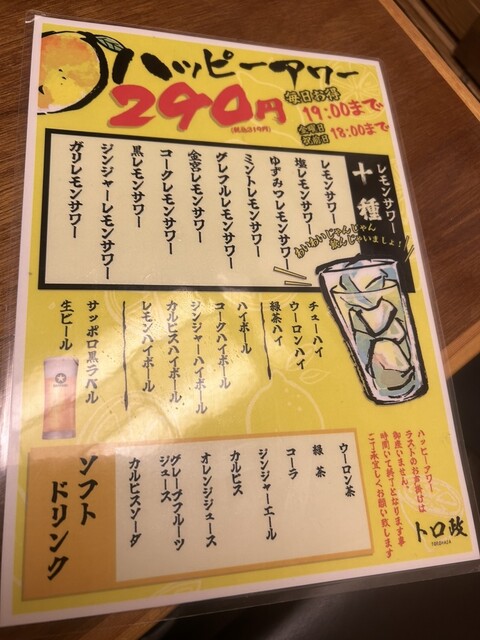 ハッピーアワー
290円
(税込319円)
毎日お得
19:00まで
金曜日
祝前日
18:00まで
レモンサワー
十種
わいわいじゃんじゃん
飲んじゃいましょ!
レモンサワー
塩レモンサワー
ゆずみつレモンサワー
ミントレモンサワー
グレフルレモンサワー
金宮レモンサワー
コークレモンサワー
黒レモンサワー
ジンジャーレモンサワー
ガリレモンサワー
チューハイ
ウーロンハイ
緑茶ハイ
ハイボール
コークハイボール
ジンジャーハイボール
カルピスハイボール
レモンハイボール
サッポロ黒ラベル
生ビール
ウーロン茶
緑茶
コーラ
ジンジャーエール
カルピス
オレンジジュース
グレープフルーツ
ジュース
カルピスソーダ
ソフト
ドリンク
ハッピーアワー
ラストのお声掛けは
御座いません。
時間いて終了となります事
ご了承宜しくお願い致します
トロ政
TOROMASA